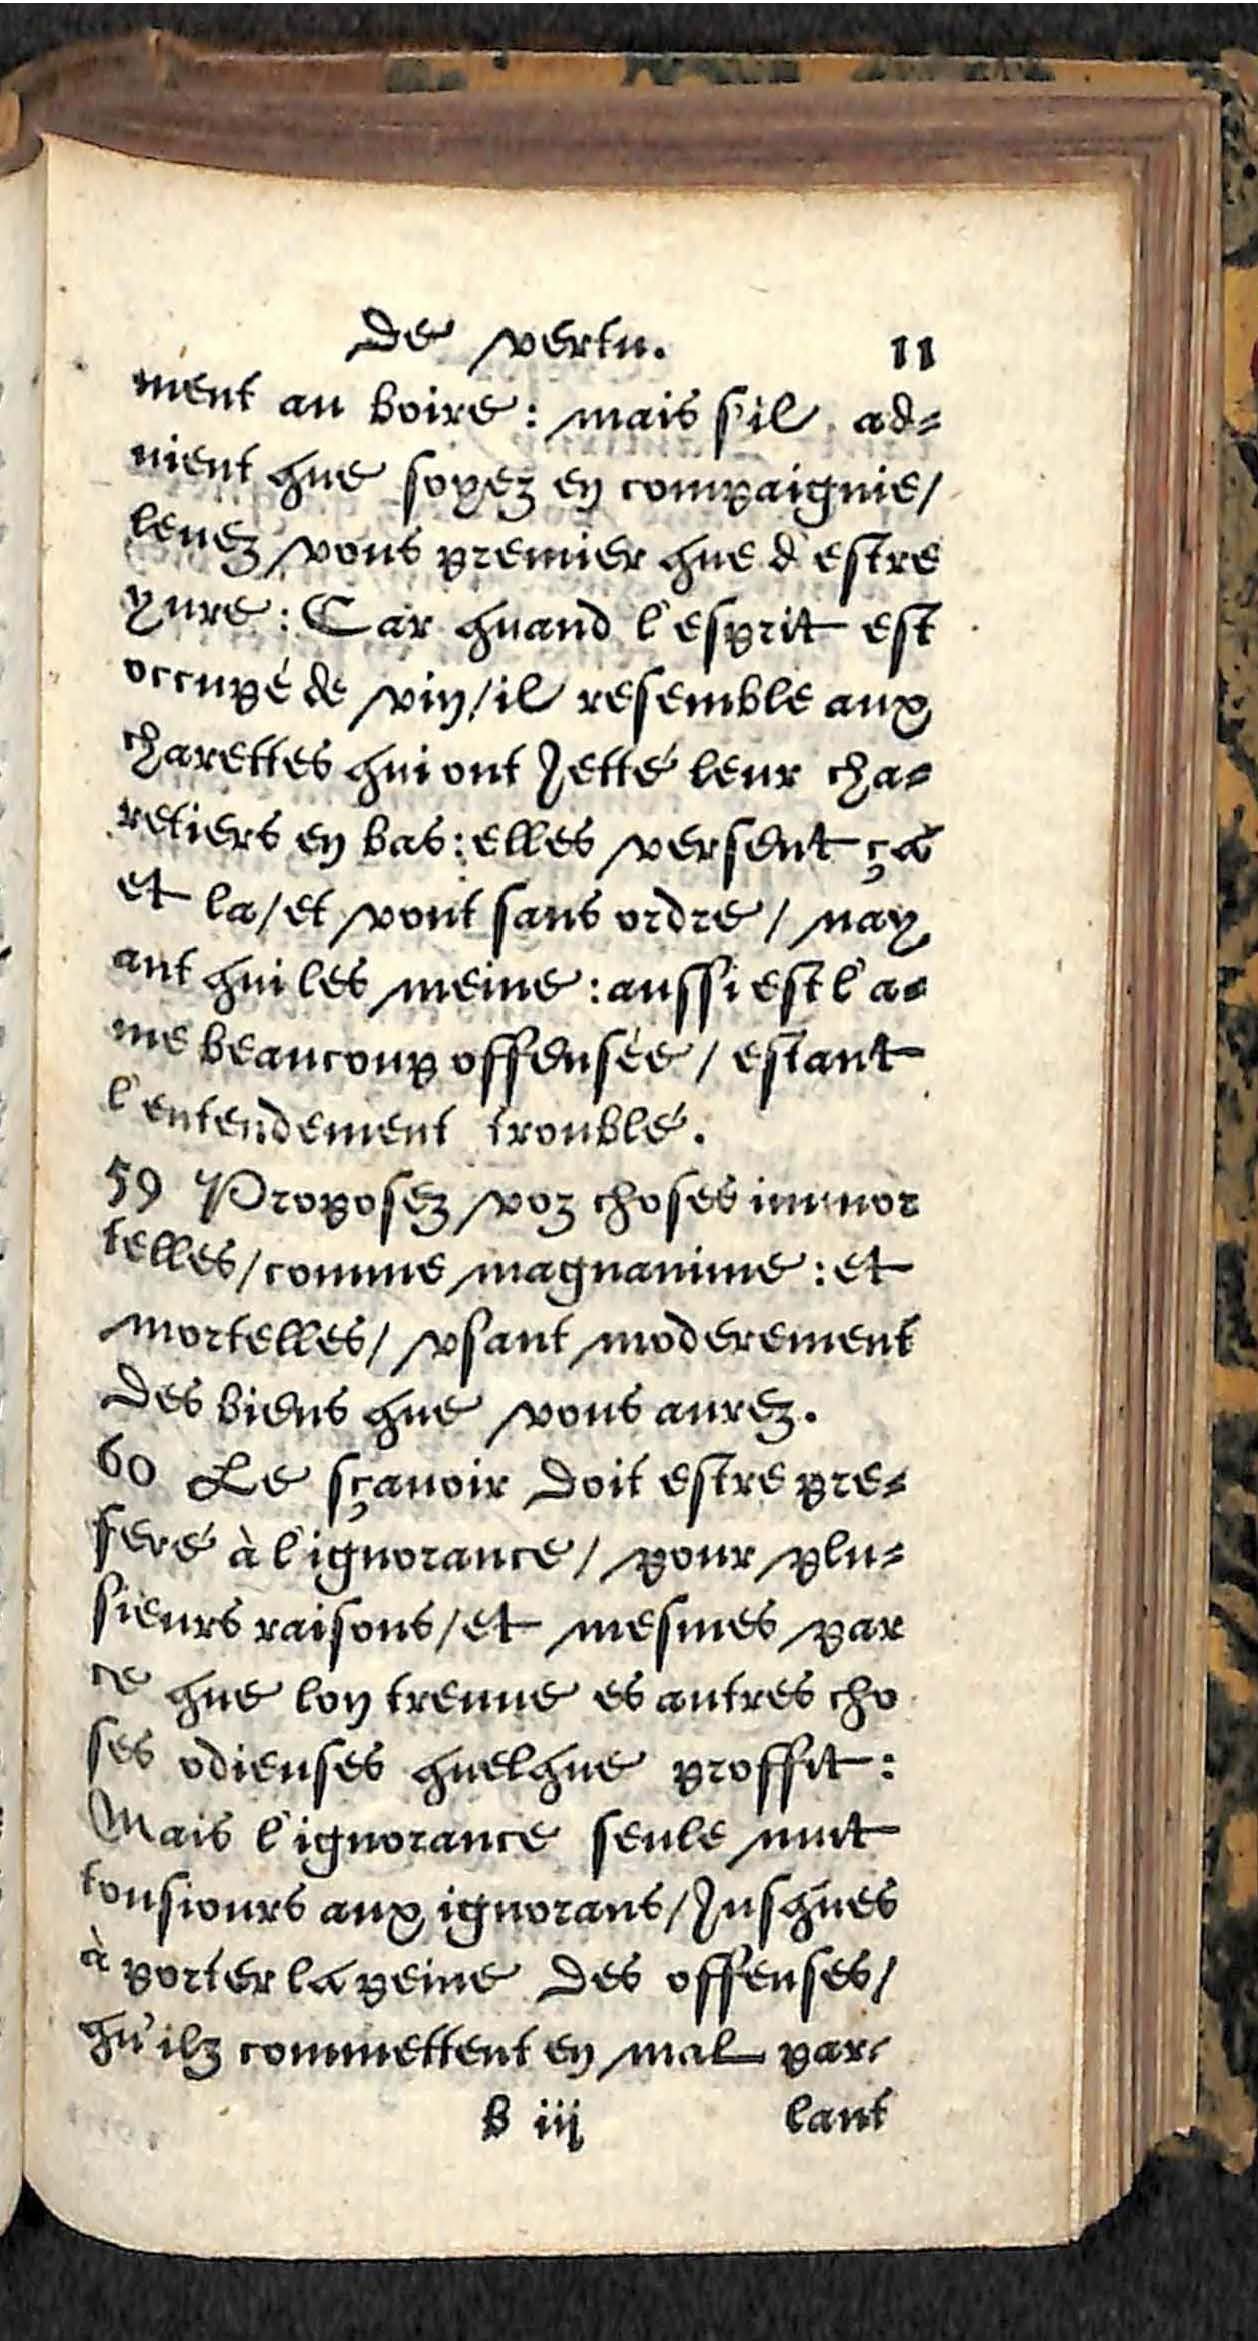 De vertu. 11
ment au boire : mais s'il ad-
uient que soyez en compaignie /
leuez vous premier que d'estre
yure : Car quand l'esprit est
occupé de vin / il resemble aux
charettes qui ont Jetté leur cha-
retiers en bas : elles versent çà
et la / et vont sans ordre / nay
ant qui les meine : aussi est l'a-
me beaucoup offensée / estant
l'entendement troublé.
59 Proposez voz choses immor
telles / comme magnanime : et
mortelles / vsant moderement
Des biens que vous aurez.
60 Le sçauoir Doit estre pre-
feré à l'ignorance / pour plu-
sieurs raisons / et mesmes par
ce que lon treuue es autres cho
ses odieuses quelque proffit :
Mais l'ignorance seule nuit
tousiours aux ignorans / Jusques
à porter la peine Des offenses /
qu'ilz commettent en mal par-
b iij lant